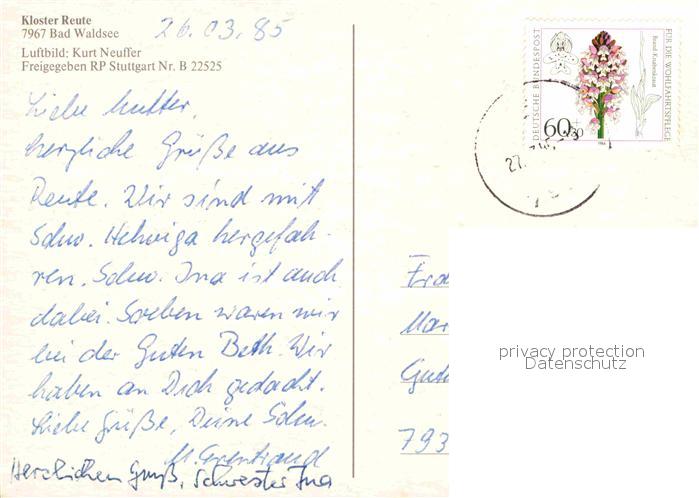 Kloster Reute
7967 Bad Waldsee
26.03.85
Luftbild: Kurt Neuffer
Freigegeben RP Stuttgart Nr. B 22525
Liebe Mutter,
herzliche Grüße aus
Reute. Wir sind mit
Schw. Helwiga hergefah-
ren. Schw. Ina ist auch
dabei. Soeben waren wir
bei der Guten Beth. Wir
haben an Dich gedacht.
Liebe Grüße, Deine Schw.
Herzlichen Gruß, Schwester Ina
DEUTSCHE BUNDESPOST
60+30
FÜR DIE WOHLFAHRTSPFLEGE
Brand-Knabenkraut
1984
27.
Fra
Mar
Gute
793
privacy protection
Datenschutz